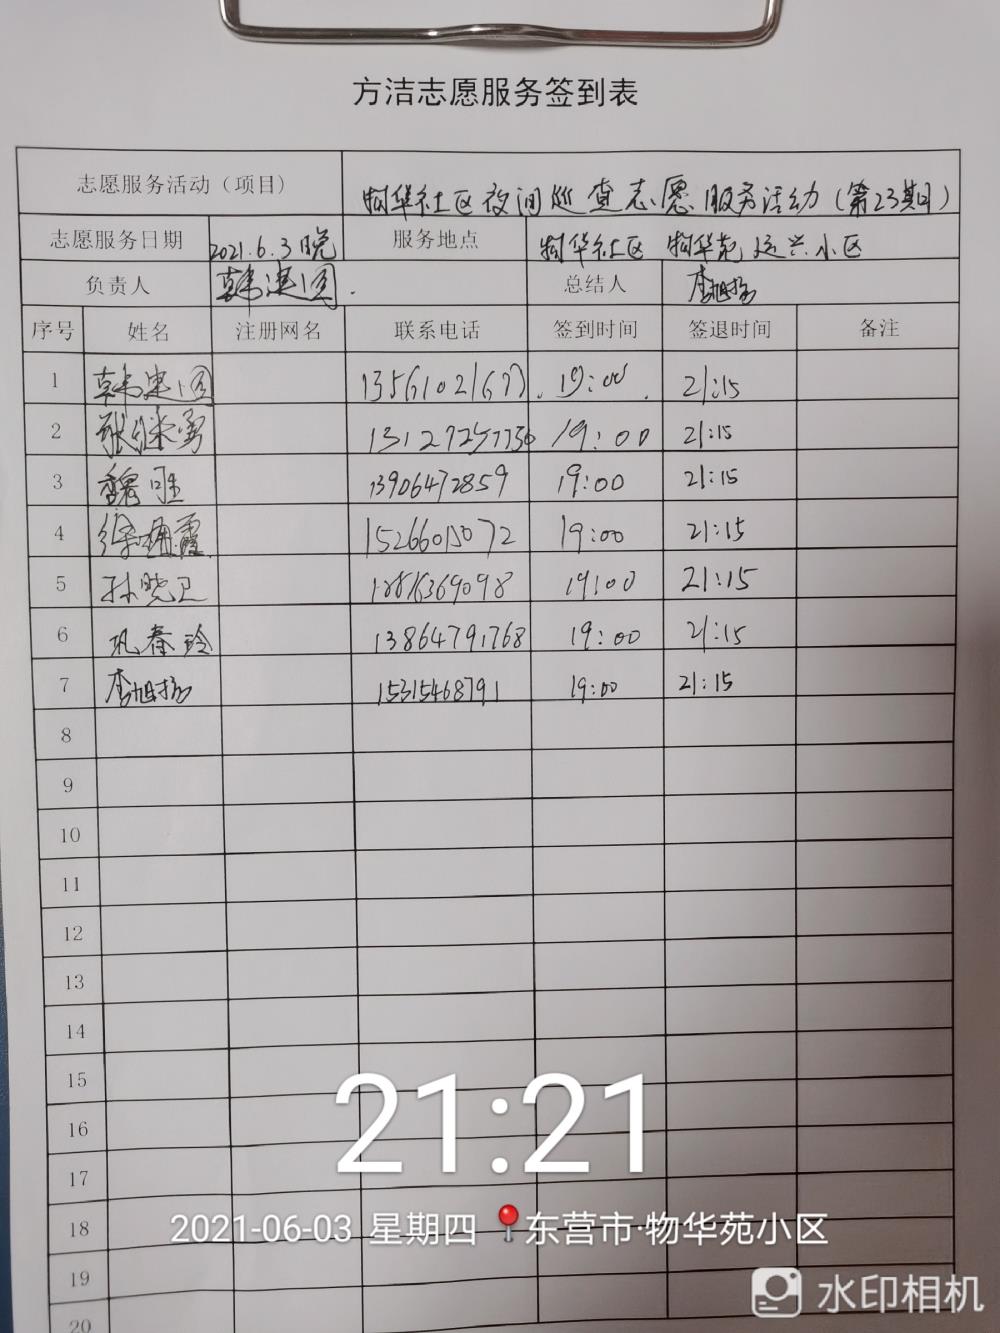 方洁志愿服务签到表
志愿服务活动（项目） 物华社区夜间巡查志愿服务活动（第23期日）
志愿服务日期 2021.6.3晚 服务地点 物华社区 物华苑 运兴小区
负责人 韩建国 总结人 李旭扬
序号 姓名 注册网名 联系电话 签到时间 签退时间 备注
1 韩建国 19:00 21:15
2 张继勇 19:00 21:15
3 魏 13906472859 19:00 21:15
4 徐梅霞 19:00 21:15
5 孙晓卫 19:00 21:15
6 巩春玲 13864791768 19:00 21:15
7 李旭扬 15315468791 19:00 21:15
8
9
10
11
12
13
14
15
16
17
18
19
20
21:21
2021-06-03 星期四 东营市·物华苑小区
水印相机